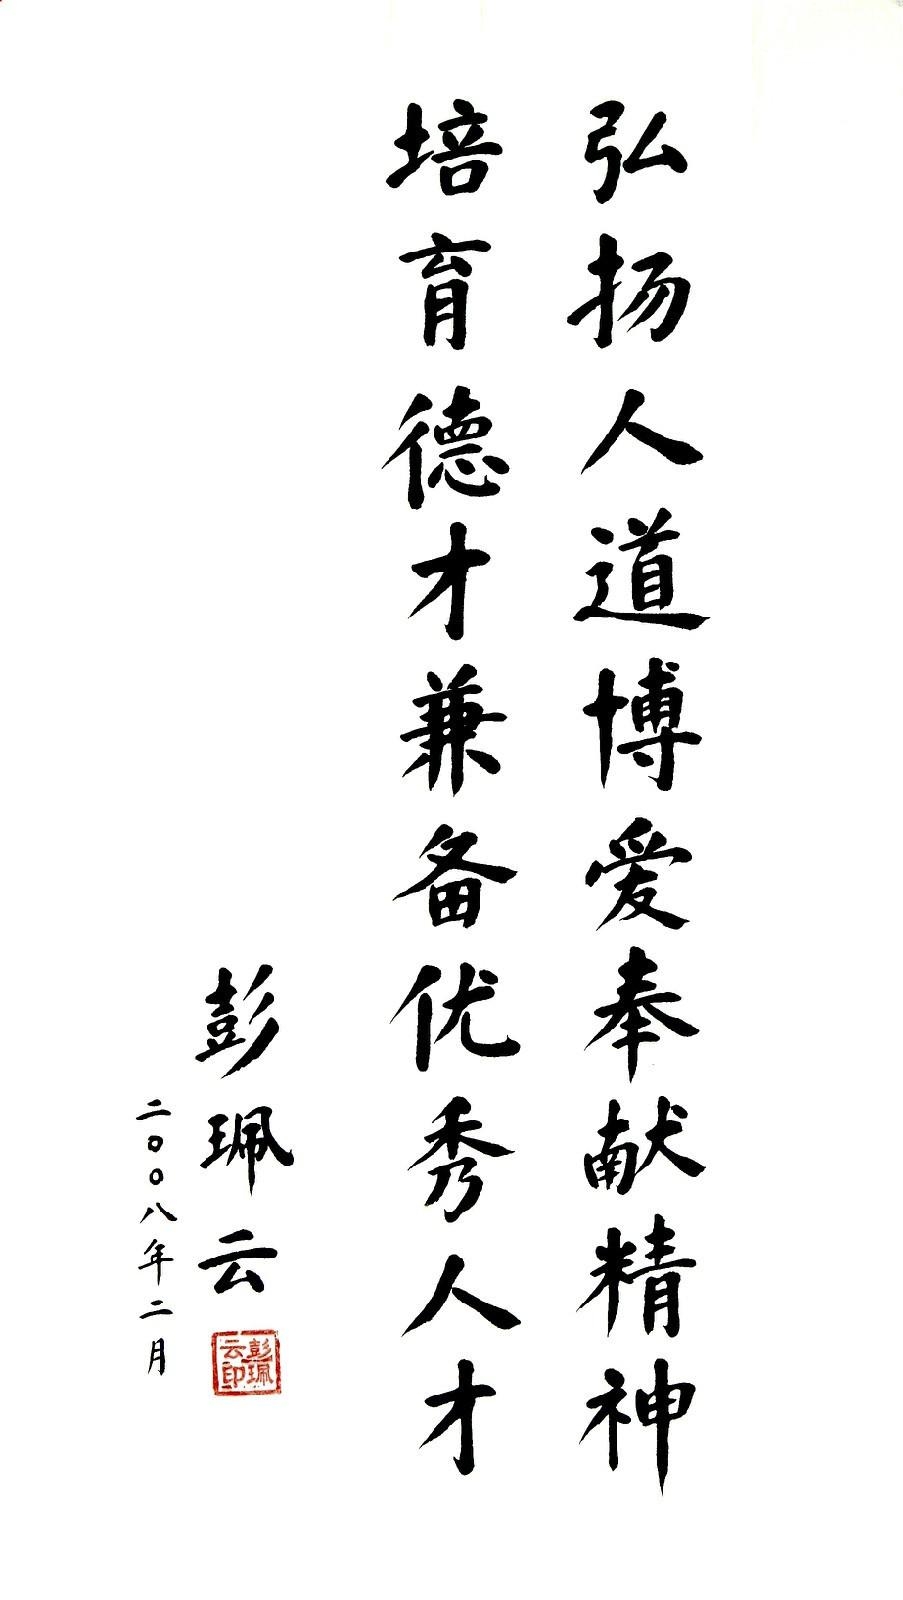 弘扬人道博爱奉献精神
培育德才兼备优秀人才
彭珮云
二〇〇八年二月
彭珮云印